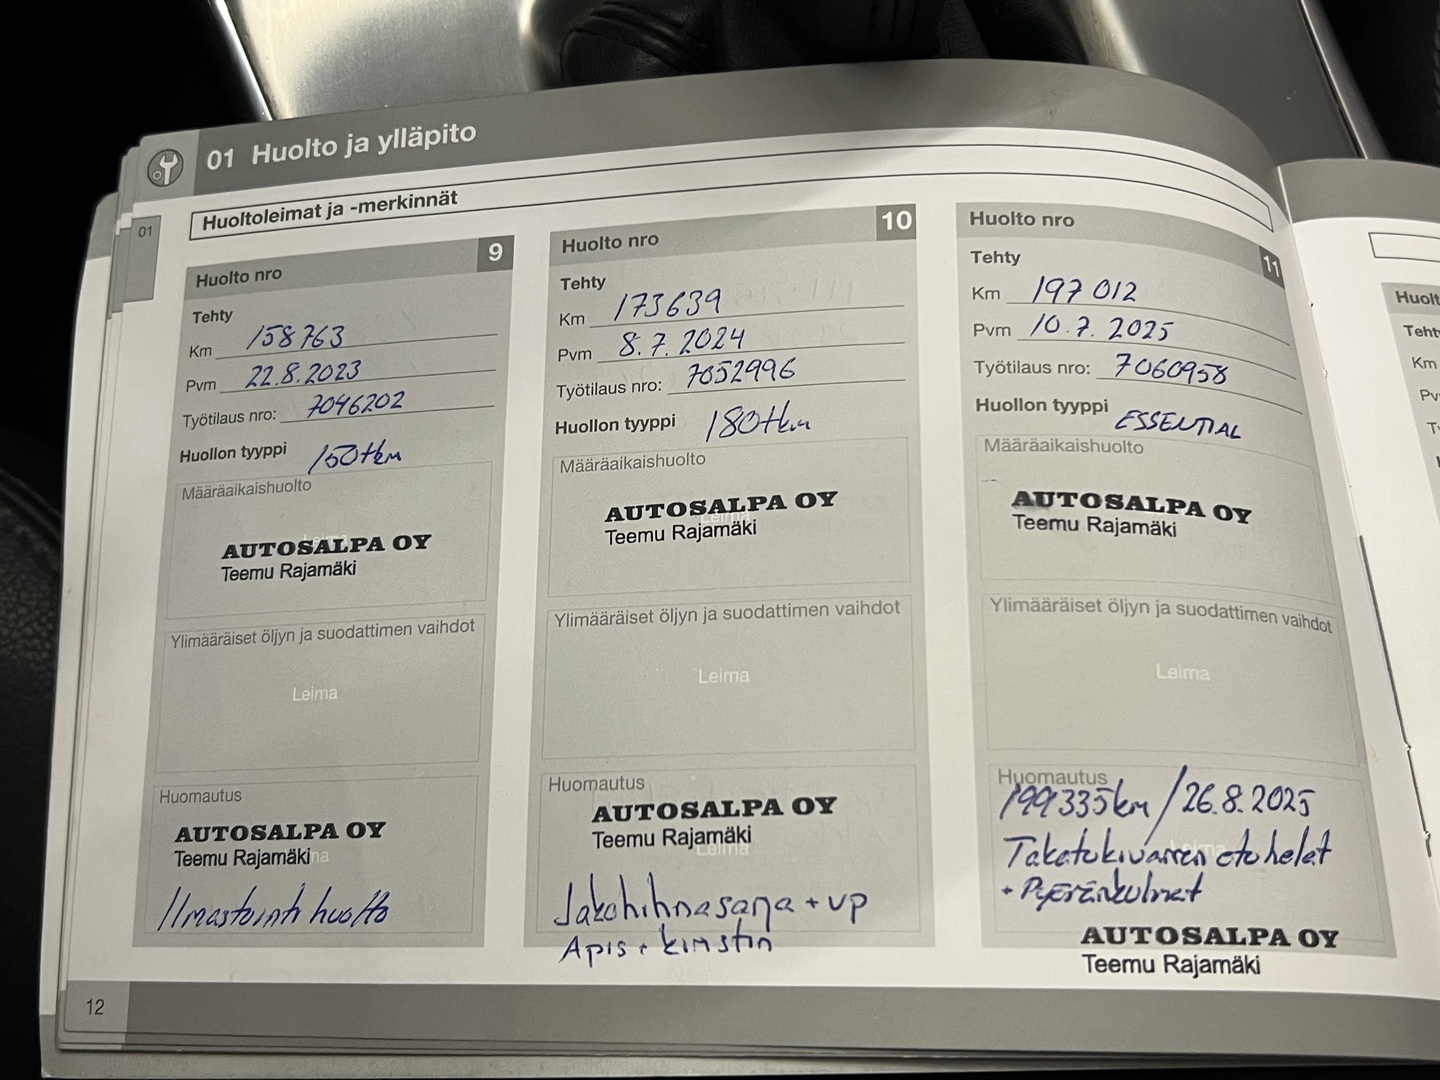 01 Huolto ja ylläpito
Huoltoleimat ja -merkinnät
01
Huolto nro 9
Tehty
Km 158763
Pvm 22.8.2023
Työtilaus nro: 7046202
Huollon tyyppi 150tkm
Määräaikaishuolto
AUTOSALPA OY
Teemu Rajamäki
Ylimääräiset öljyn ja suodattimen vaihdot
Leima
Huomautus
AUTOSALPA OY
Teemu Rajamäki
Ilmastointi huolto
Huolto nro 10
Tehty
Km 173639
Pvm 8.7.2024
Työtilaus nro: 7052996
Huollon tyyppi 180tkm
Määräaikaishuolto
Leima
AUTOSALPA OY
Teemu Rajamäki
Ylimääräiset öljyn ja suodattimen vaihdot
Leima
Huomautus
AUTOSALPA OY
Teemu Rajamäki
Leima
Jakohihnasarja + vp
Apis + kiristin
Huolto nro 11
Tehty
Km 197 012
Pvm 10.7.2025
Työtilaus nro: 7060958
Huollon tyyppi ESSENTIAL
Määräaikaishuolto
AUTOSALPA OY
Teemu Rajamäki
Ylimääräiset öljyn ja suodattimen vaihdot
Leima
Huomautus
199335km / 26.8.2025
Takatukivarren etuhelat
+ Pyöränkulmat
AUTOSALPA OY
Teemu Rajamäki
12
Huolt
Teht
Km
Pv